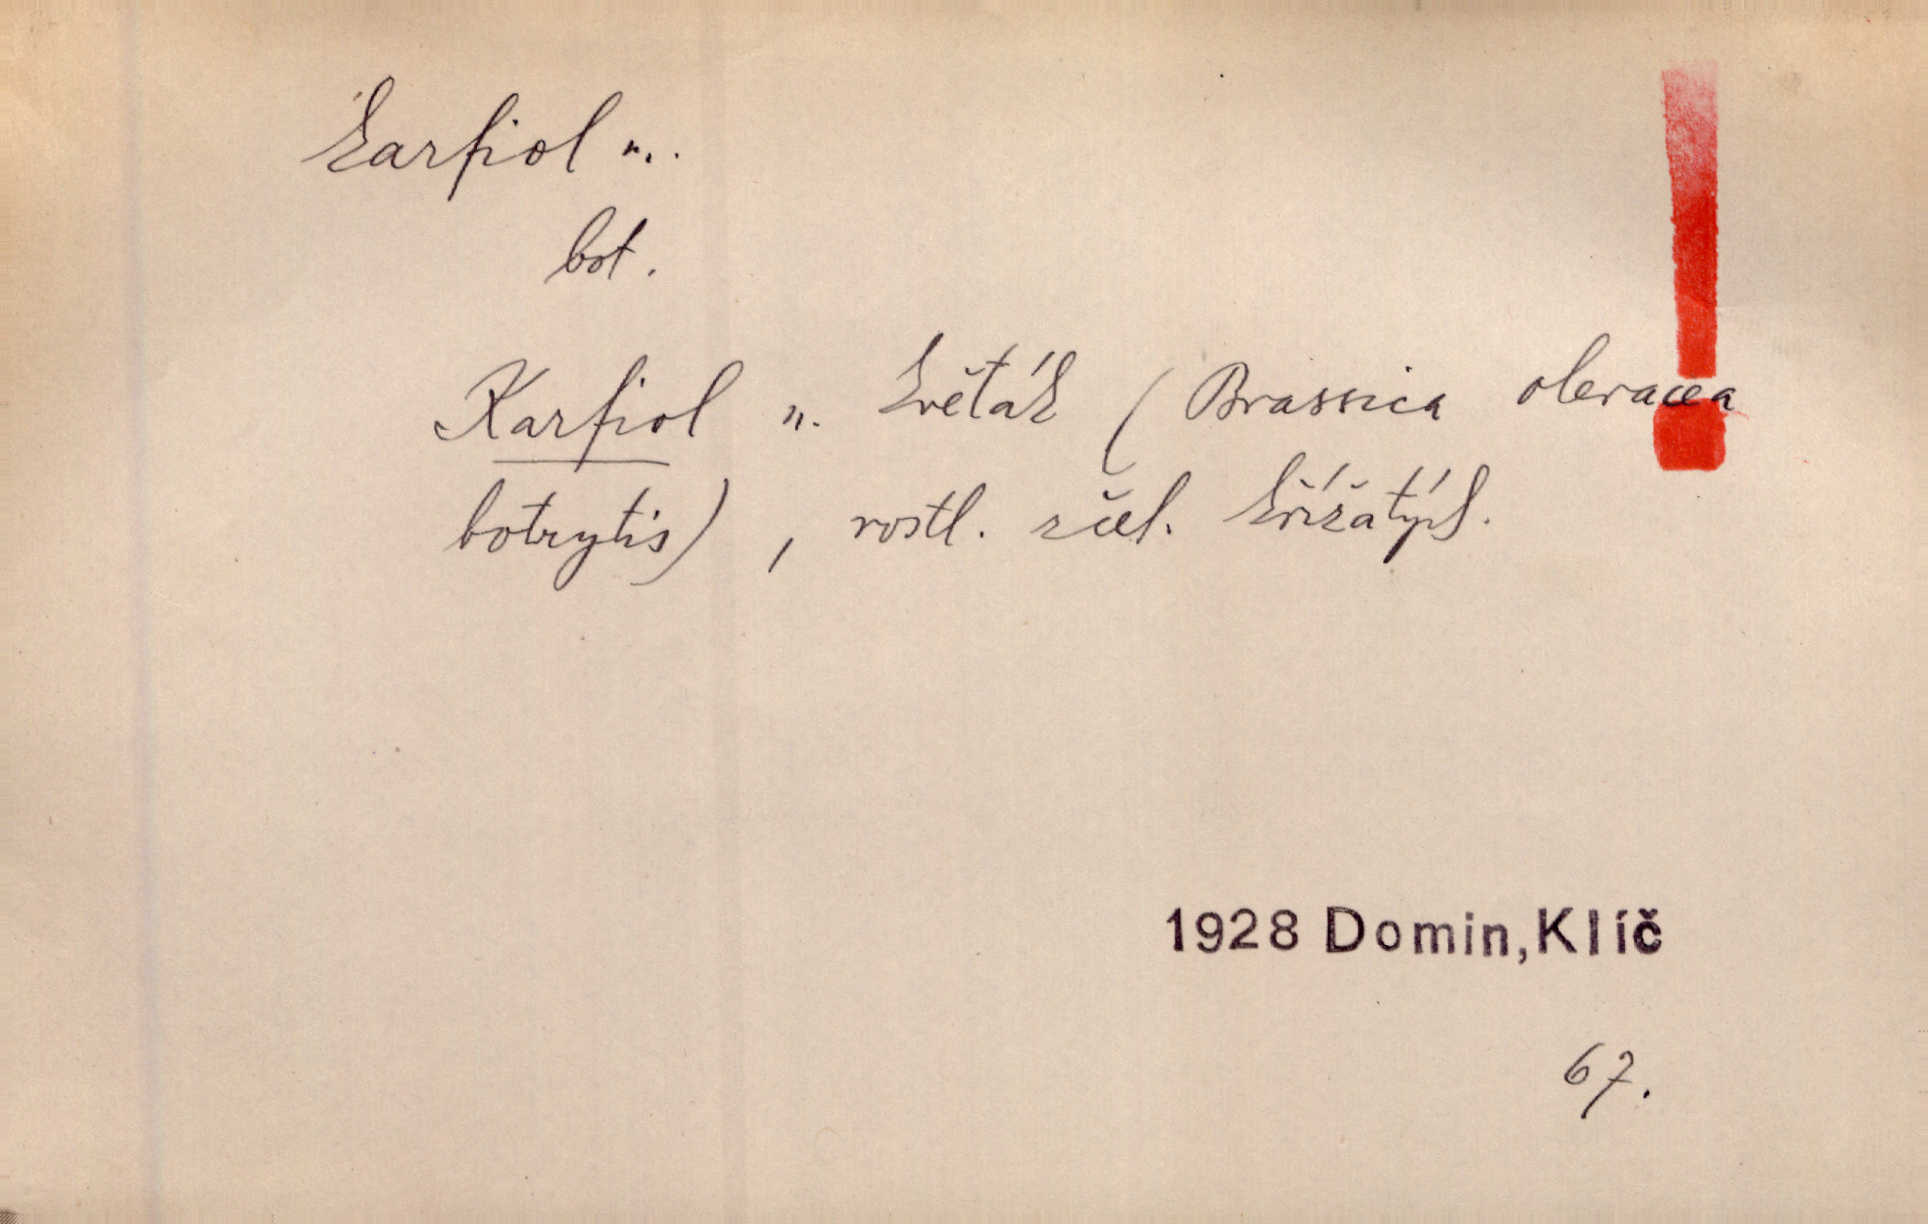 karfiol m.
bot.
Karfiol n. květák (Brassica oleracea
botrytis), rostl. z čel. křížatých.
1928 Domin, Klíč
67.